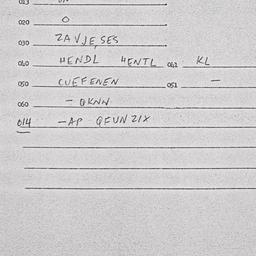 020 O
030 ZAVJESES
040 HENDL HENTL 042 KL
050 CUEFENEN 051 -
060 - QKNN
014 -AP QFUNZIX